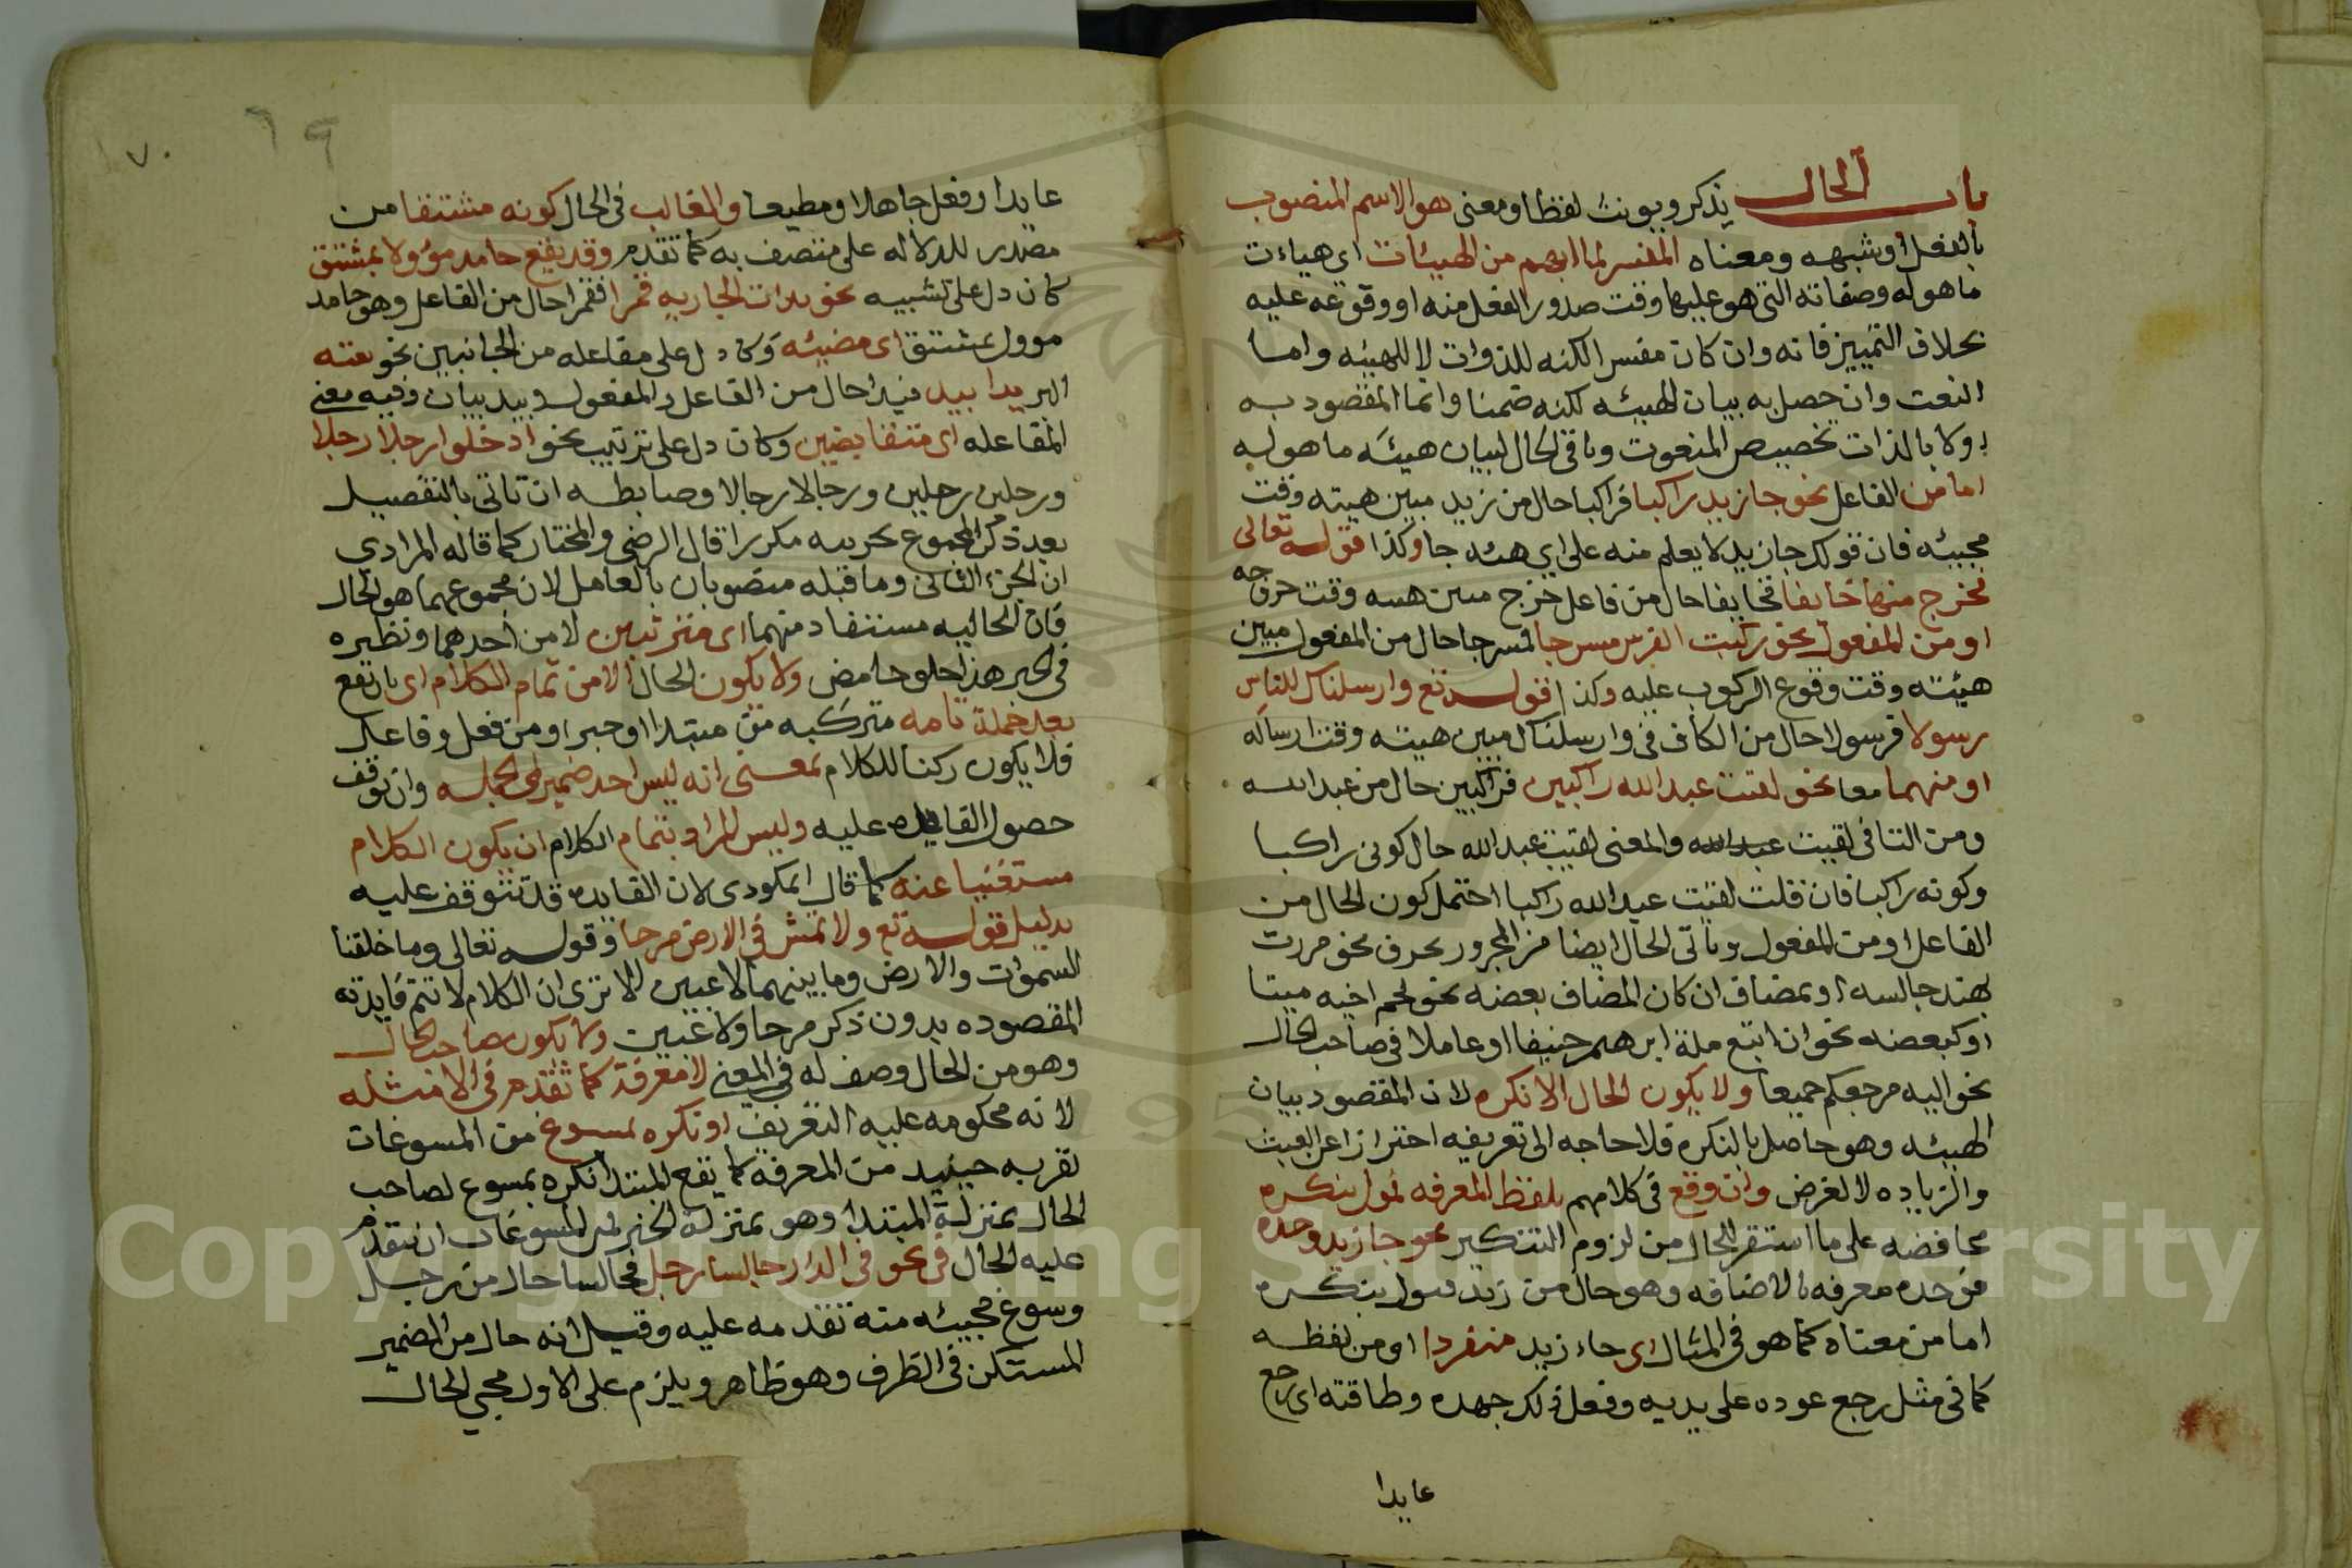 باب الحال يذكر ويونث لفظا ومعنى هو الاسم المنصوب
بالفعل او شبهه ومعناه المفسر لما ابهم من الهيئات اى هيات
ما هو له وصفاته التى هو عليها وقت صدور الفعل منه او وقوعه عليه
بخلاف التمييز فانه وان كان مفسرا لكنه للذوات لا للهيئه واما
النعت وان حصل به بيان الهيئه لكنه ضمنا وانما المقصود به
اولا بالذات تخصيص المنعوت وياتى الحال لبيان هيئة ما هو له
اما من الفاعل نحو جا زيد راكبا فراكبا حال من زيد مبين هيئته وقت
مجيئه فان قولك جا زيد لا يعلم منه على اى هيئه جا وكذا قوله تعالى
فخرج منها خايفا فخايفا حال من فاعل خرج مبين هيئه وقت خروجه
او من المفعول نحو ركبت الفرس مسرجا فمسرجا حال من المفعول مبين
هيئته وقت وقوع الركوب عليه وكذا قوله تع وارسلناك للناس
رسولا فرسولا حال من الكاف فى وارسلناك مبين هيئته وقت ارساله
او منهما معا نحو لقيت عبد الله راكبين فراكبين حال من عبد الله
ومن التا فى لقيت عبد الله والمعنى لقيت عبد الله حال كونى راكبا
وكونه راكبا فان قلت لقيت عبد الله راكبا احتمل كون الحال من
الفاعل او من المفعول وياتى الحال ايضا من المجرور بحرف نحو مررت
بهند جالسه او بمضاف ان كان المضاف بعضه نحو لحم اخيه ميتا
او كبعضه نحو ان اتبع ملة ابرهيم حنيفا او عاملا فى صاحب الحال
نحو اليه مرجعكم جميعا ولا يكون الحال الا نكره لان المقصود بيان
الهيئه وهو حاصل بالنكره فلا حاجه الى تعريفه احترازا عن العبث
والزياده لا لغرض وان وقع فى كلامهم بلفظ المعرفه اول بنكره
محافضه على ما استقر للحال من لزوم التنكير نحو جا زيد وحده
فوحده معرفه بالاضافه وهو حال من زيد فيول بنكره
اما من معناه كما هو فى المثال اى جاء زيد منفردا او من لفظه
كما فى مثل رجع عوده على بديه وفعل ذلك جهده وطاقته اى رجع
عايدا
٦٩
٧٠
عايدا وفعل جاهدا ومطيعا والغالب فى الحال كونه مشتقا من
مصدر للدلاله على متصف به كما تقدم وقد يقع جامد مؤولا بمشتق
كان دل على تشبيه نحو بدات الجاريه قمرا فقمرا حال من الفاعل وهو جامد
موول بمشتق اى مضيئه وكان دل على مفاعله من الجانبين نحو بعته
البر يدا بيد فيدا حال من الفاعل والمفعول وبيد بيان وفيه معنى
المفاعله اى متقابضين وكان دل على ترتيب نحو ادخلوا رجلا رجلا
ورجلين رجلين ورجالا رجالا وضابطه ان تاتى بالتفصيل
بعد ذكر المجموع بجزيه مكررا قال الرضى والمختار كما قاله المرادي
ان الجزء الثانى وما قبله منصوبان بالعامل لان مجموعهما هو الحال
فان الحاليه مستفاد منهما اى مترتبين لا من احدهما ونظيره
فى الخبر هذا حلو حامض ولا يكون الحال الا من تمام الكلام اى بان يقع
بعد جملة تامه متركبه من مبتدا او خبر او من فعل وفاعل
فلا يكون ركنا للكلام بمعنى انه ليس احد ضميرى الجمله وان توقف
حصول الفايده عليه وليس المراد بتمام الكلام ان يكون الكلام
مستغنيا عنه كما قال المكودى لان الفايده قد تتوقف عليه
بدليل قوله تع ولا تمش فى الارض مرحا وقوله تعالى وما خلقنا
السموات والارض وما بينهما لاعبين الا ترى ان الكلام لا تتم فايدته
المقصوده بدون ذكر مرحا ولاعبين ولا يكون صاحب الحال
وهو من الحال وصف له فى المعنى الا معرفة كما تقدم فى الامثله
لانه محكومه عليه التعريف او نكره بمسوغ من المسوغات
تقربه حينيد من المعرفة كما يقع المبتدا نكره بمسوغ لصاحب
الحال بمنزلة المبتدا وهو بمنزلة الخبر فمن المسوغات ان تتقدم
عليه الحال فى نحو فى الدار جالسا رجل فجالسا حال من رجل
وسوغ مجيئه منه تقدمه عليه وقيل انه حال من الضمير
المستكن فى الظرف وهو ظاهر ويلزم على الاول مجى الحال
Copyright © King Saud University